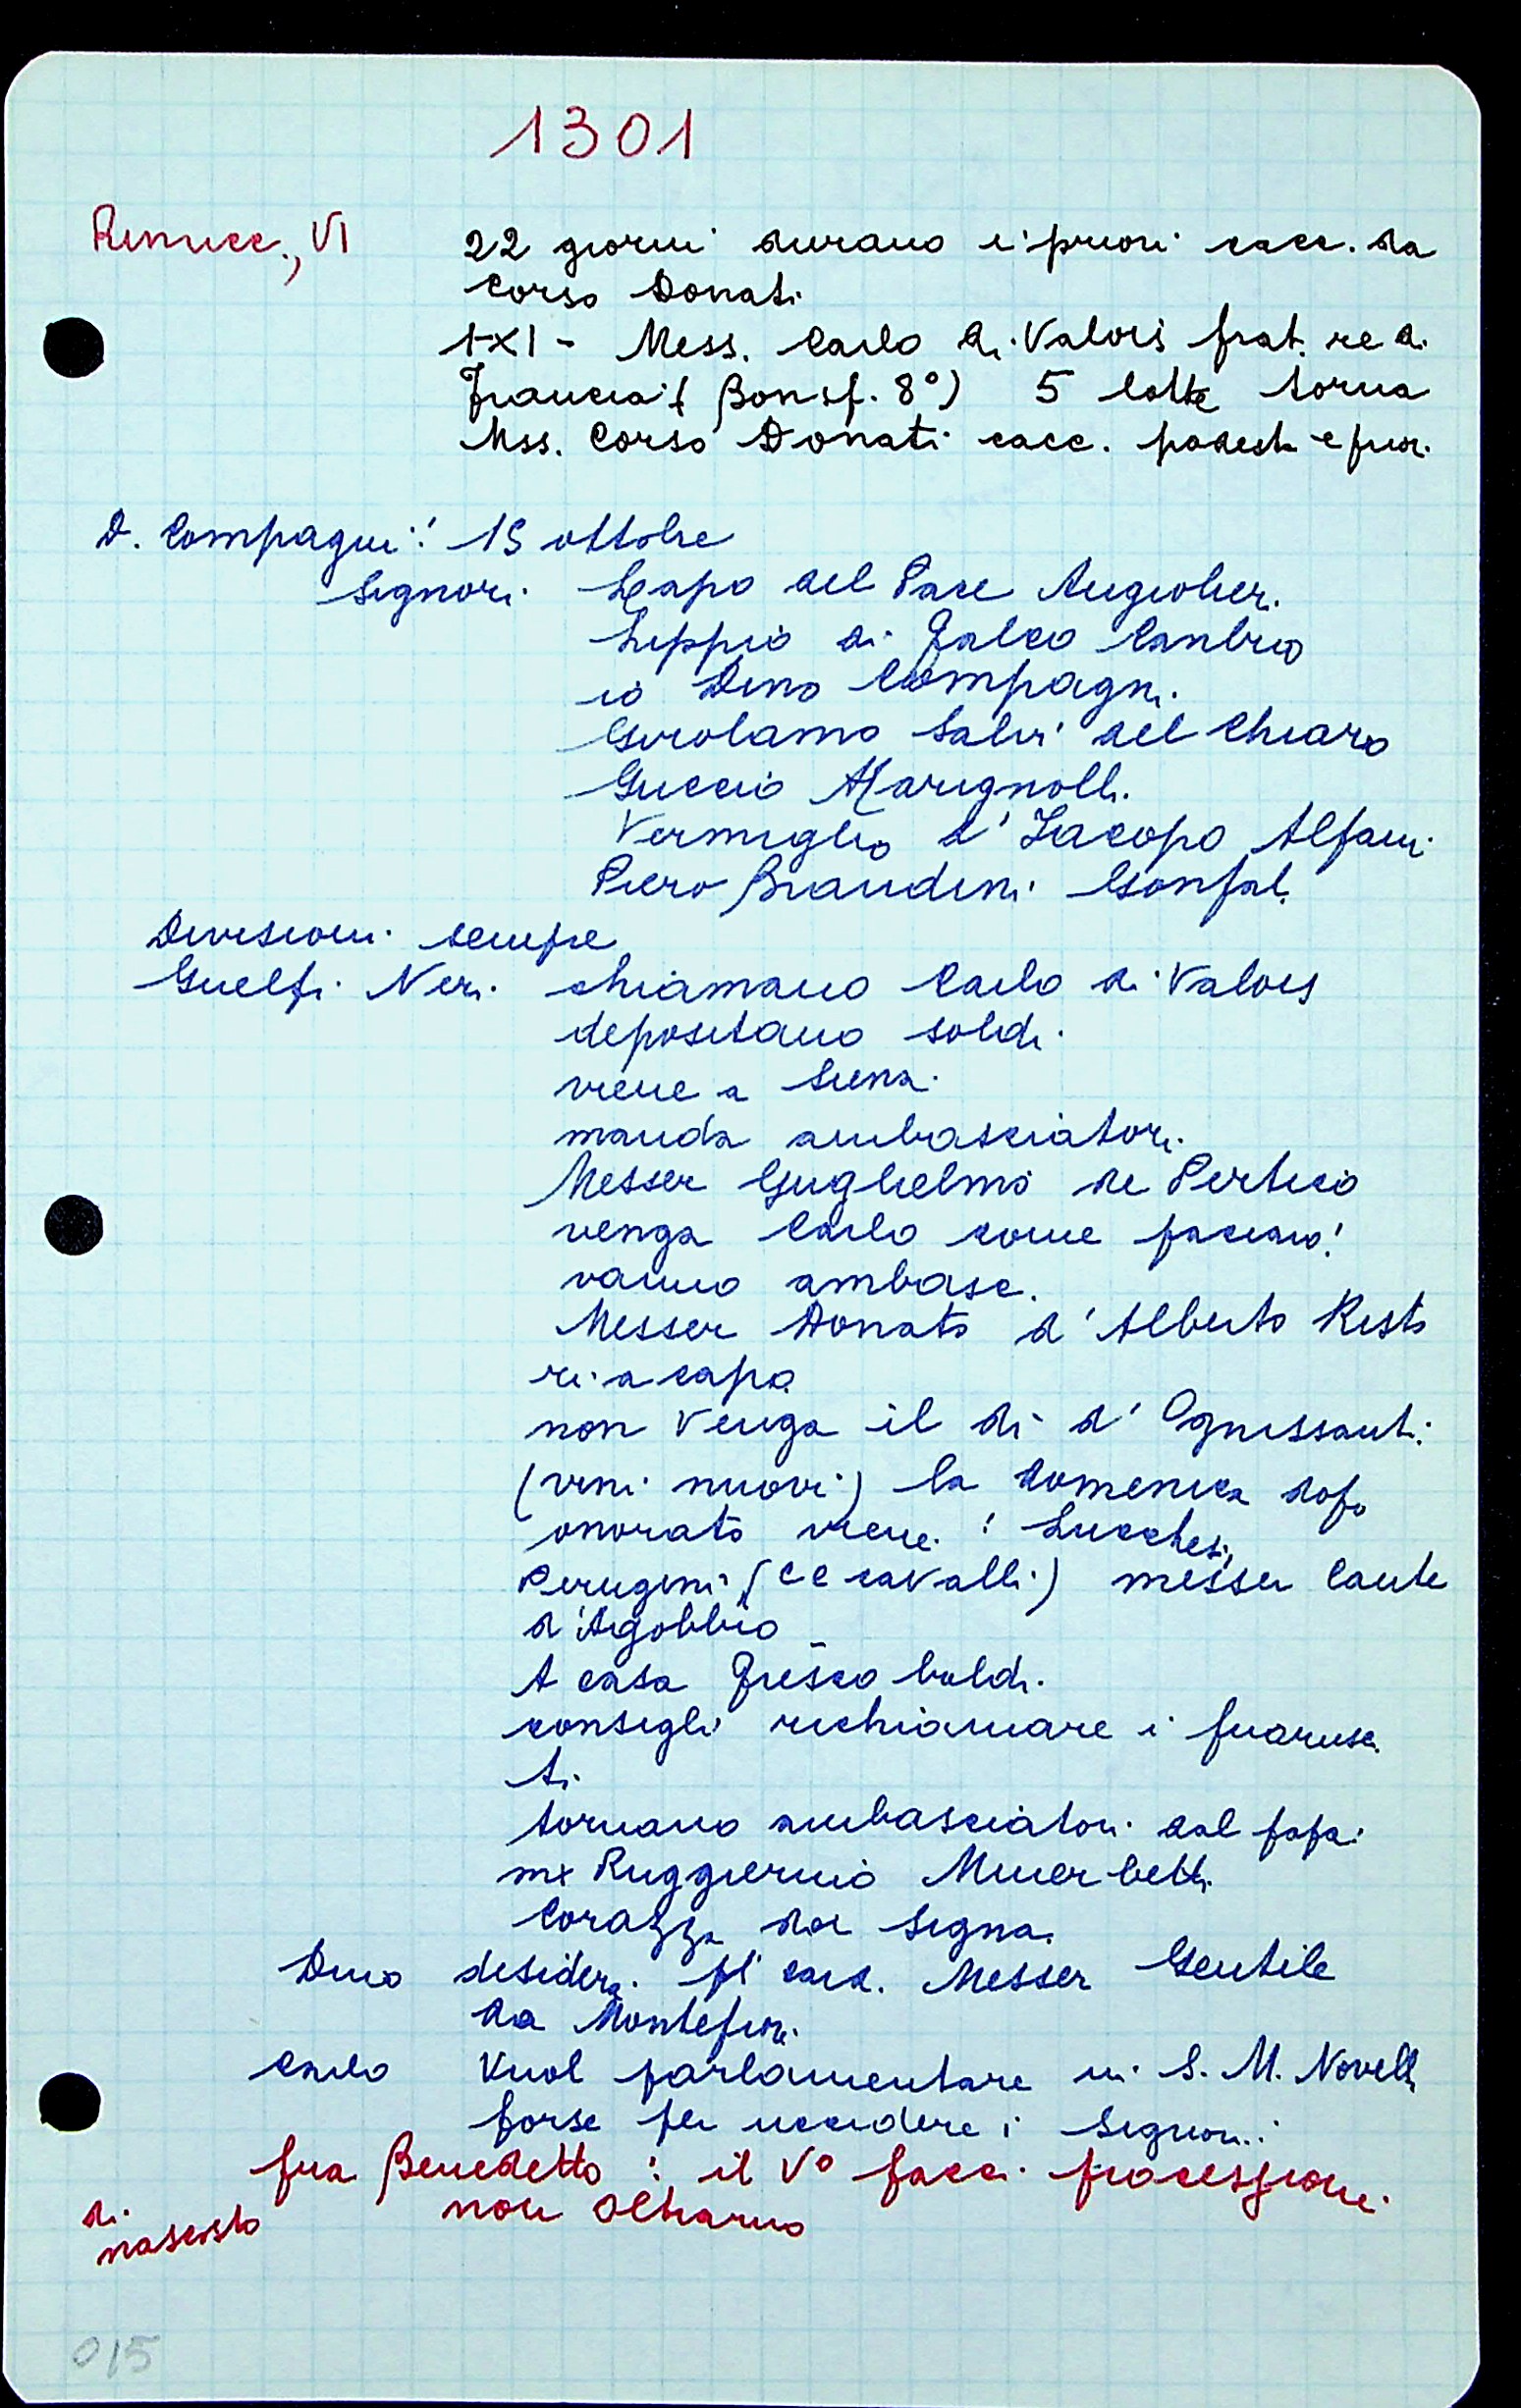 1301
Rinucc., VI 22 giorni durano i priori cacc. da
Corso Donati
1-XI - Mess. Carlo di Valois frat. re di
Francia (Bonif. 8°) 5 lotte torna
Mss. Corso Donati cacc. podest. e prior.
D. Compagni: 15 ottobre
Signori Lapo del Pace Angiolier.
Lippo di Falco Canbio
io Dino Compagni
Girolamo Salvi del Chiaro
Guccio Marignolli
Vermiglio d'Iacopo Alfani
Piero Brandini Gonfal.
Divisioni sempre
Guelfi Neri chiamano Carlo di Valois
depositano soldi
viene a Siena
manda ambasciatori
Messer Guglielmo de Perteco
venga Carlo come paciaro!
vanno ambasc.
Messer Donato d'Alberto Risto
ri a capo
non venga il dì d'Ognissanti
(vini nuovi) la domenica dopo
onorato viene: Lucchesi,
Perugini (CC cavalli) messer Cante
d'Agobbio
A casa Frescobaldi
consigli richiamare i fuorusci
ti
tornano ambasciatori dal papa:
mx Ruggierino Minerbetti
Corazza da Segna
Dino desidera pl card. Messer Gentile
da Montefiori
Carlo vuol parlamentare in S. M. Novella
forse per uccidere i Signori
fra Benedetto: il V° facci processione
di
nascosto non Oltrarno
015